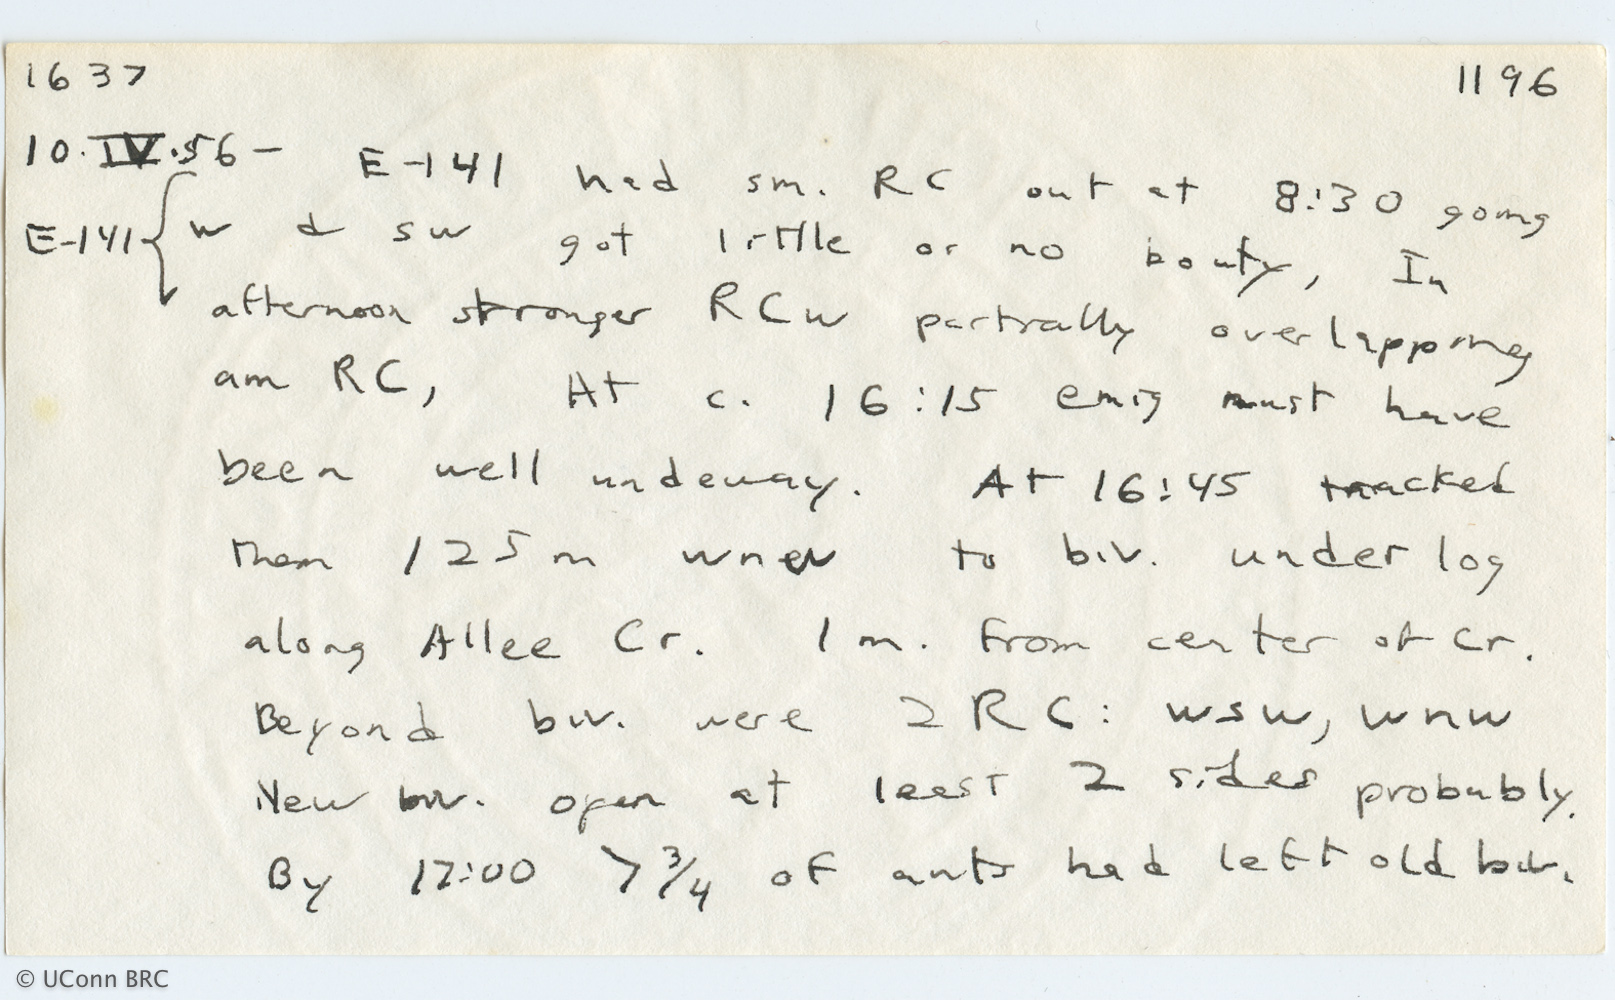 1637 1196
10.IV.56 — E-141 had sm. RC out at 8:30 going
E-141 { w & sw got little or no bouty, In
afternoon stronger RC w partially overlapping
am RC, At c. 16:15 emig must have
been well undeway. At 16:45 tracked
them 125 m wnw to biv. under log
along Allee Cr. 1 m. from center of Cr.
Beyond biv. were 2 RC: wsw, wnw
New biv. open at least 2 sides probably.
By 17:00 > 3/4 of ants had left old biv.
© UConn BRC